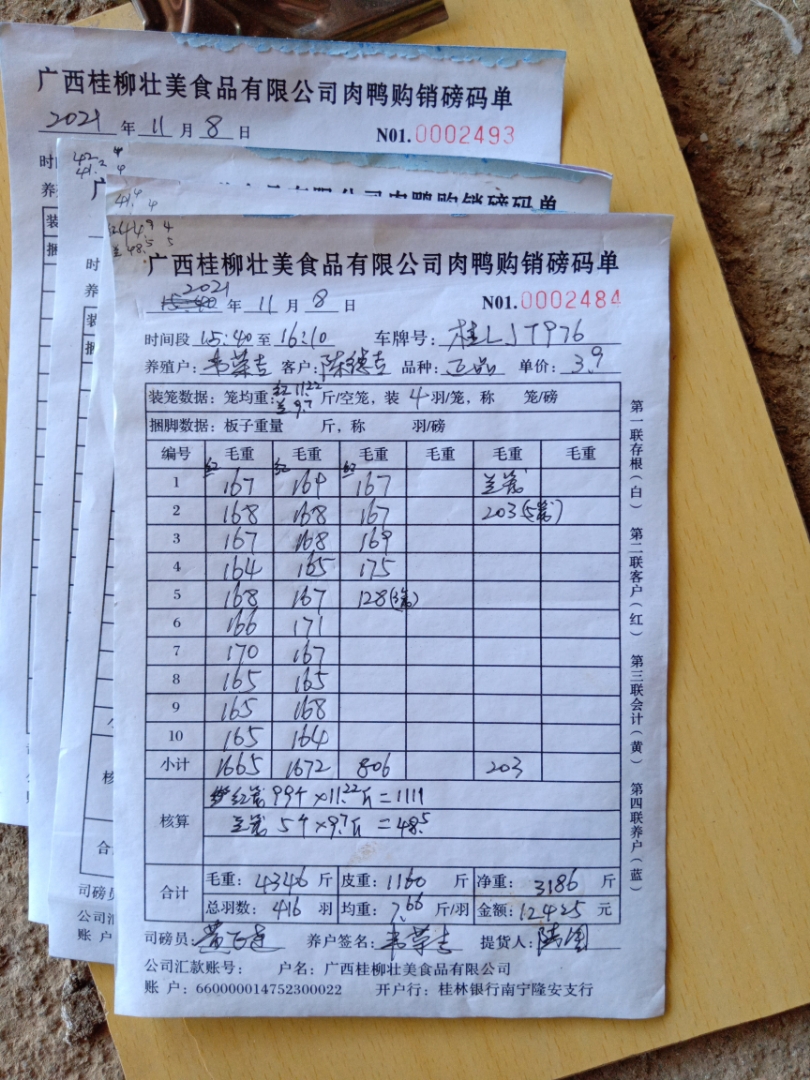 广西桂柳壮美食品有限公司肉鸭购销磅码单
2021 年 11 月 8 日 N01.0002493
时
养
装
捆
42.2 4
41.2 4
广
购销磅码单
时
养
装
捆
广西桂柳壮美食品有限公司肉鸭购销磅码单
2021
15:40 年 11 月 8 日 N01.0002484
时间段 15:40 至 16:10 车牌号: 桂LJT976
养殖户: 韦荣吉 客户: 陈德吉 品种: 正品 单价: 3.9
装笼数据: 笼均重: 红11.22 兰9.7 斤/空笼, 装 4 羽/笼, 称 笼/磅
捆脚数据: 板子重量 斤, 称 羽/磅
编号 毛重 毛重 毛重 毛重 毛重 毛重
红 红 红
1 167 169 167 兰笼
2 168 168 167 203(5笼)
3 167 168 169
4 164 165 175
5 168 167 128
6 166 171
7 170 167
8 165 165
9 165 168
10 165 164
小计 1665 1672 806 203
核算 红笼 99个×11.22斤=1111
兰笼 5个×9.7斤=48.5
合计 毛重: 4346 斤 皮重: 1160 斤 净重: 3186 斤
总羽数: 416 羽 均重: 7.66 斤/羽 金额: 12425 元
司磅员: 养户签名: 韦荣吉 提货人:
公司汇款账号: 户名: 广西桂柳壮美食品有限公司
账 户: 660000014752300022 开户行: 桂林银行南宁隆安支行
第一联存根(白) 第二联客户(红) 第三联会计(黄) 第四联养户(蓝)
小
核
合
司磅员
公司汇
账 户